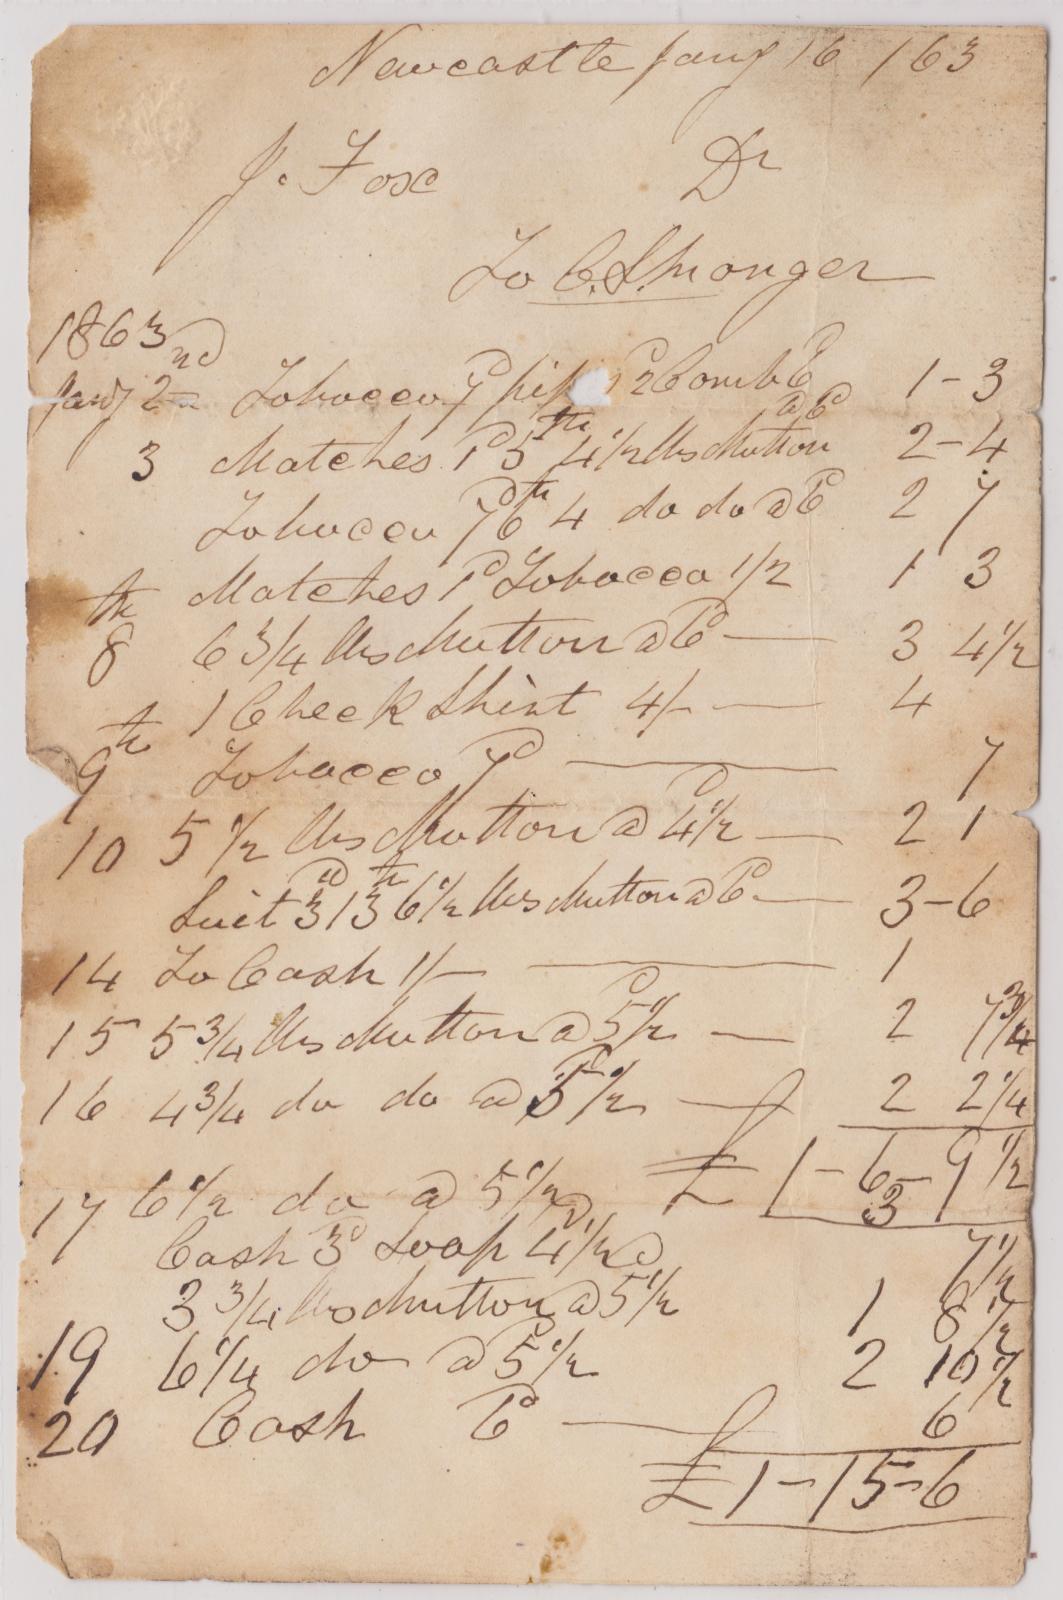 Newcastle Jany 16 /63
J. Fox Dr
To C. S. Monger
1863
Jany 2nd Tobacco 7d pip 2 Comb 6d 1-3
3 Matches 1d 5th 4 1/2 lbs Mutton @ 6d 2-4
Tobacco 7d 6th 4 do do @ 6d 2 7
Matches 1d Tobacco 1/2 1 3
8th 6 3/4 lbs Mutton @ 6d 3 4 1/2
1 Check Shirt 4/- 4
9th Tobacco 7d 7
10 5 1/2 lbs Mutton @ 4 1/2d 2 1
Suit 3d 13th 6 1/2 lbs Mutton @ 6d 3-6
14 To Cash 1/- 1
15 5 3/4 lbs Mutton @ 5 1/2d 2 7 3/4
16 4 3/4 do do @ 5 1/2d 2 2 1/4
£ 1-6-9 1/2
17 6 1/2 do @ 5 1/2d 3
Cash 3d Soap 4 1/2d 7 1/2
3 3/4 lbs Mutton @ 5 1/2d 1 8 1/2
19 6 1/4 do @ 5 1/2d 2 10 1/2
20 Cash 6d 6
£ 1-15-6